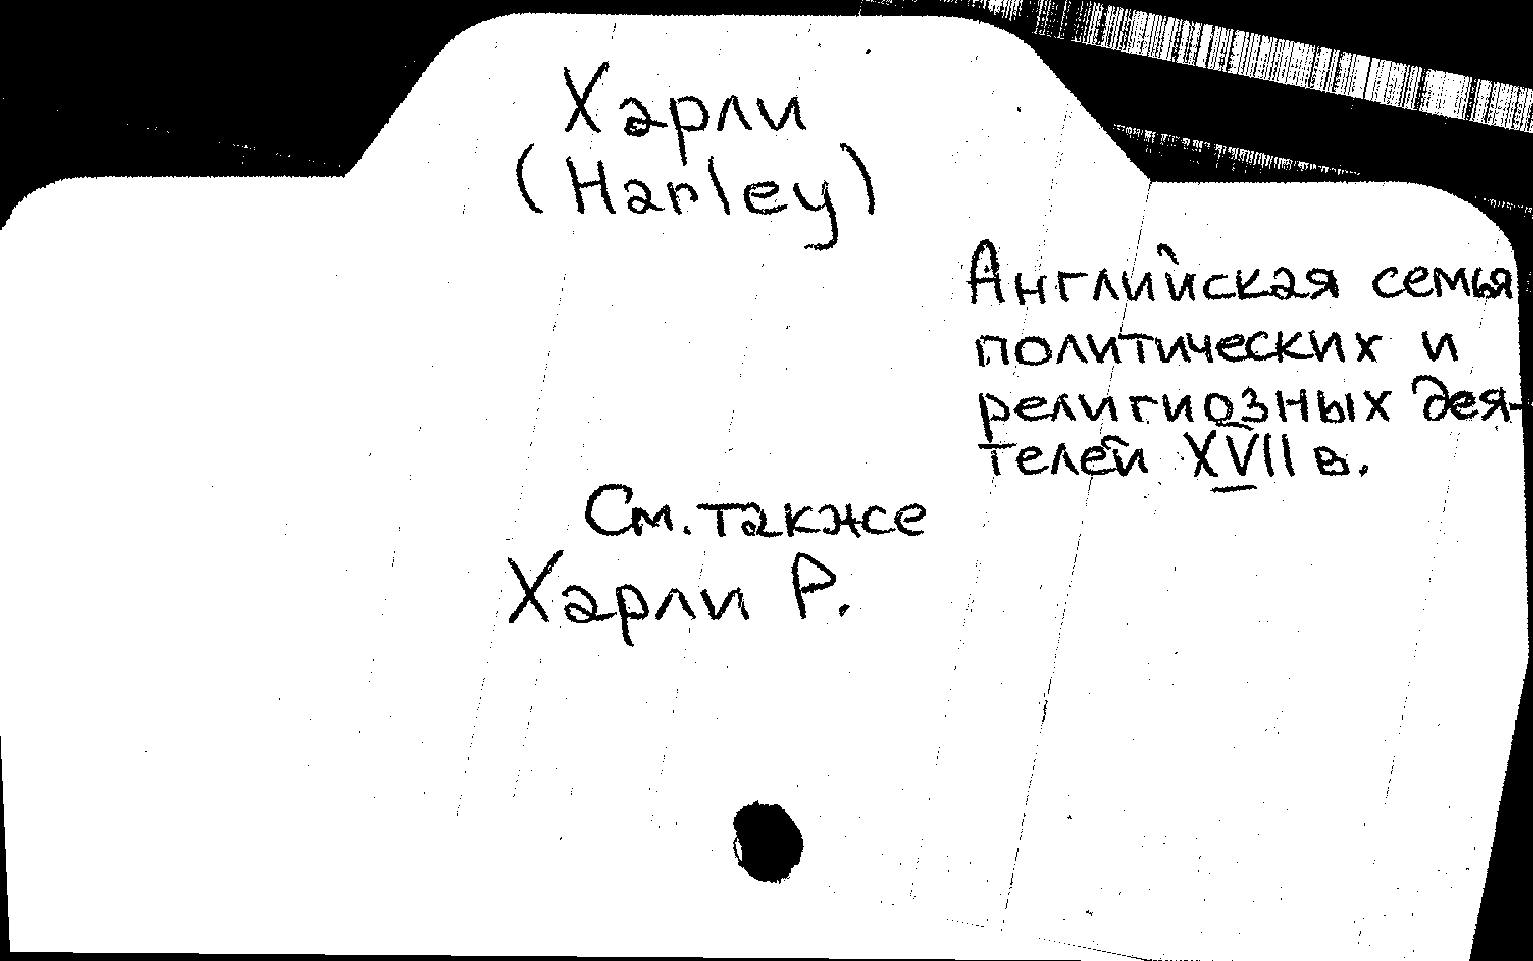 Харли
(Harley)
Английская семья
политических и
религиозных дея-
телей XVII в.
См. также
Харли Р.